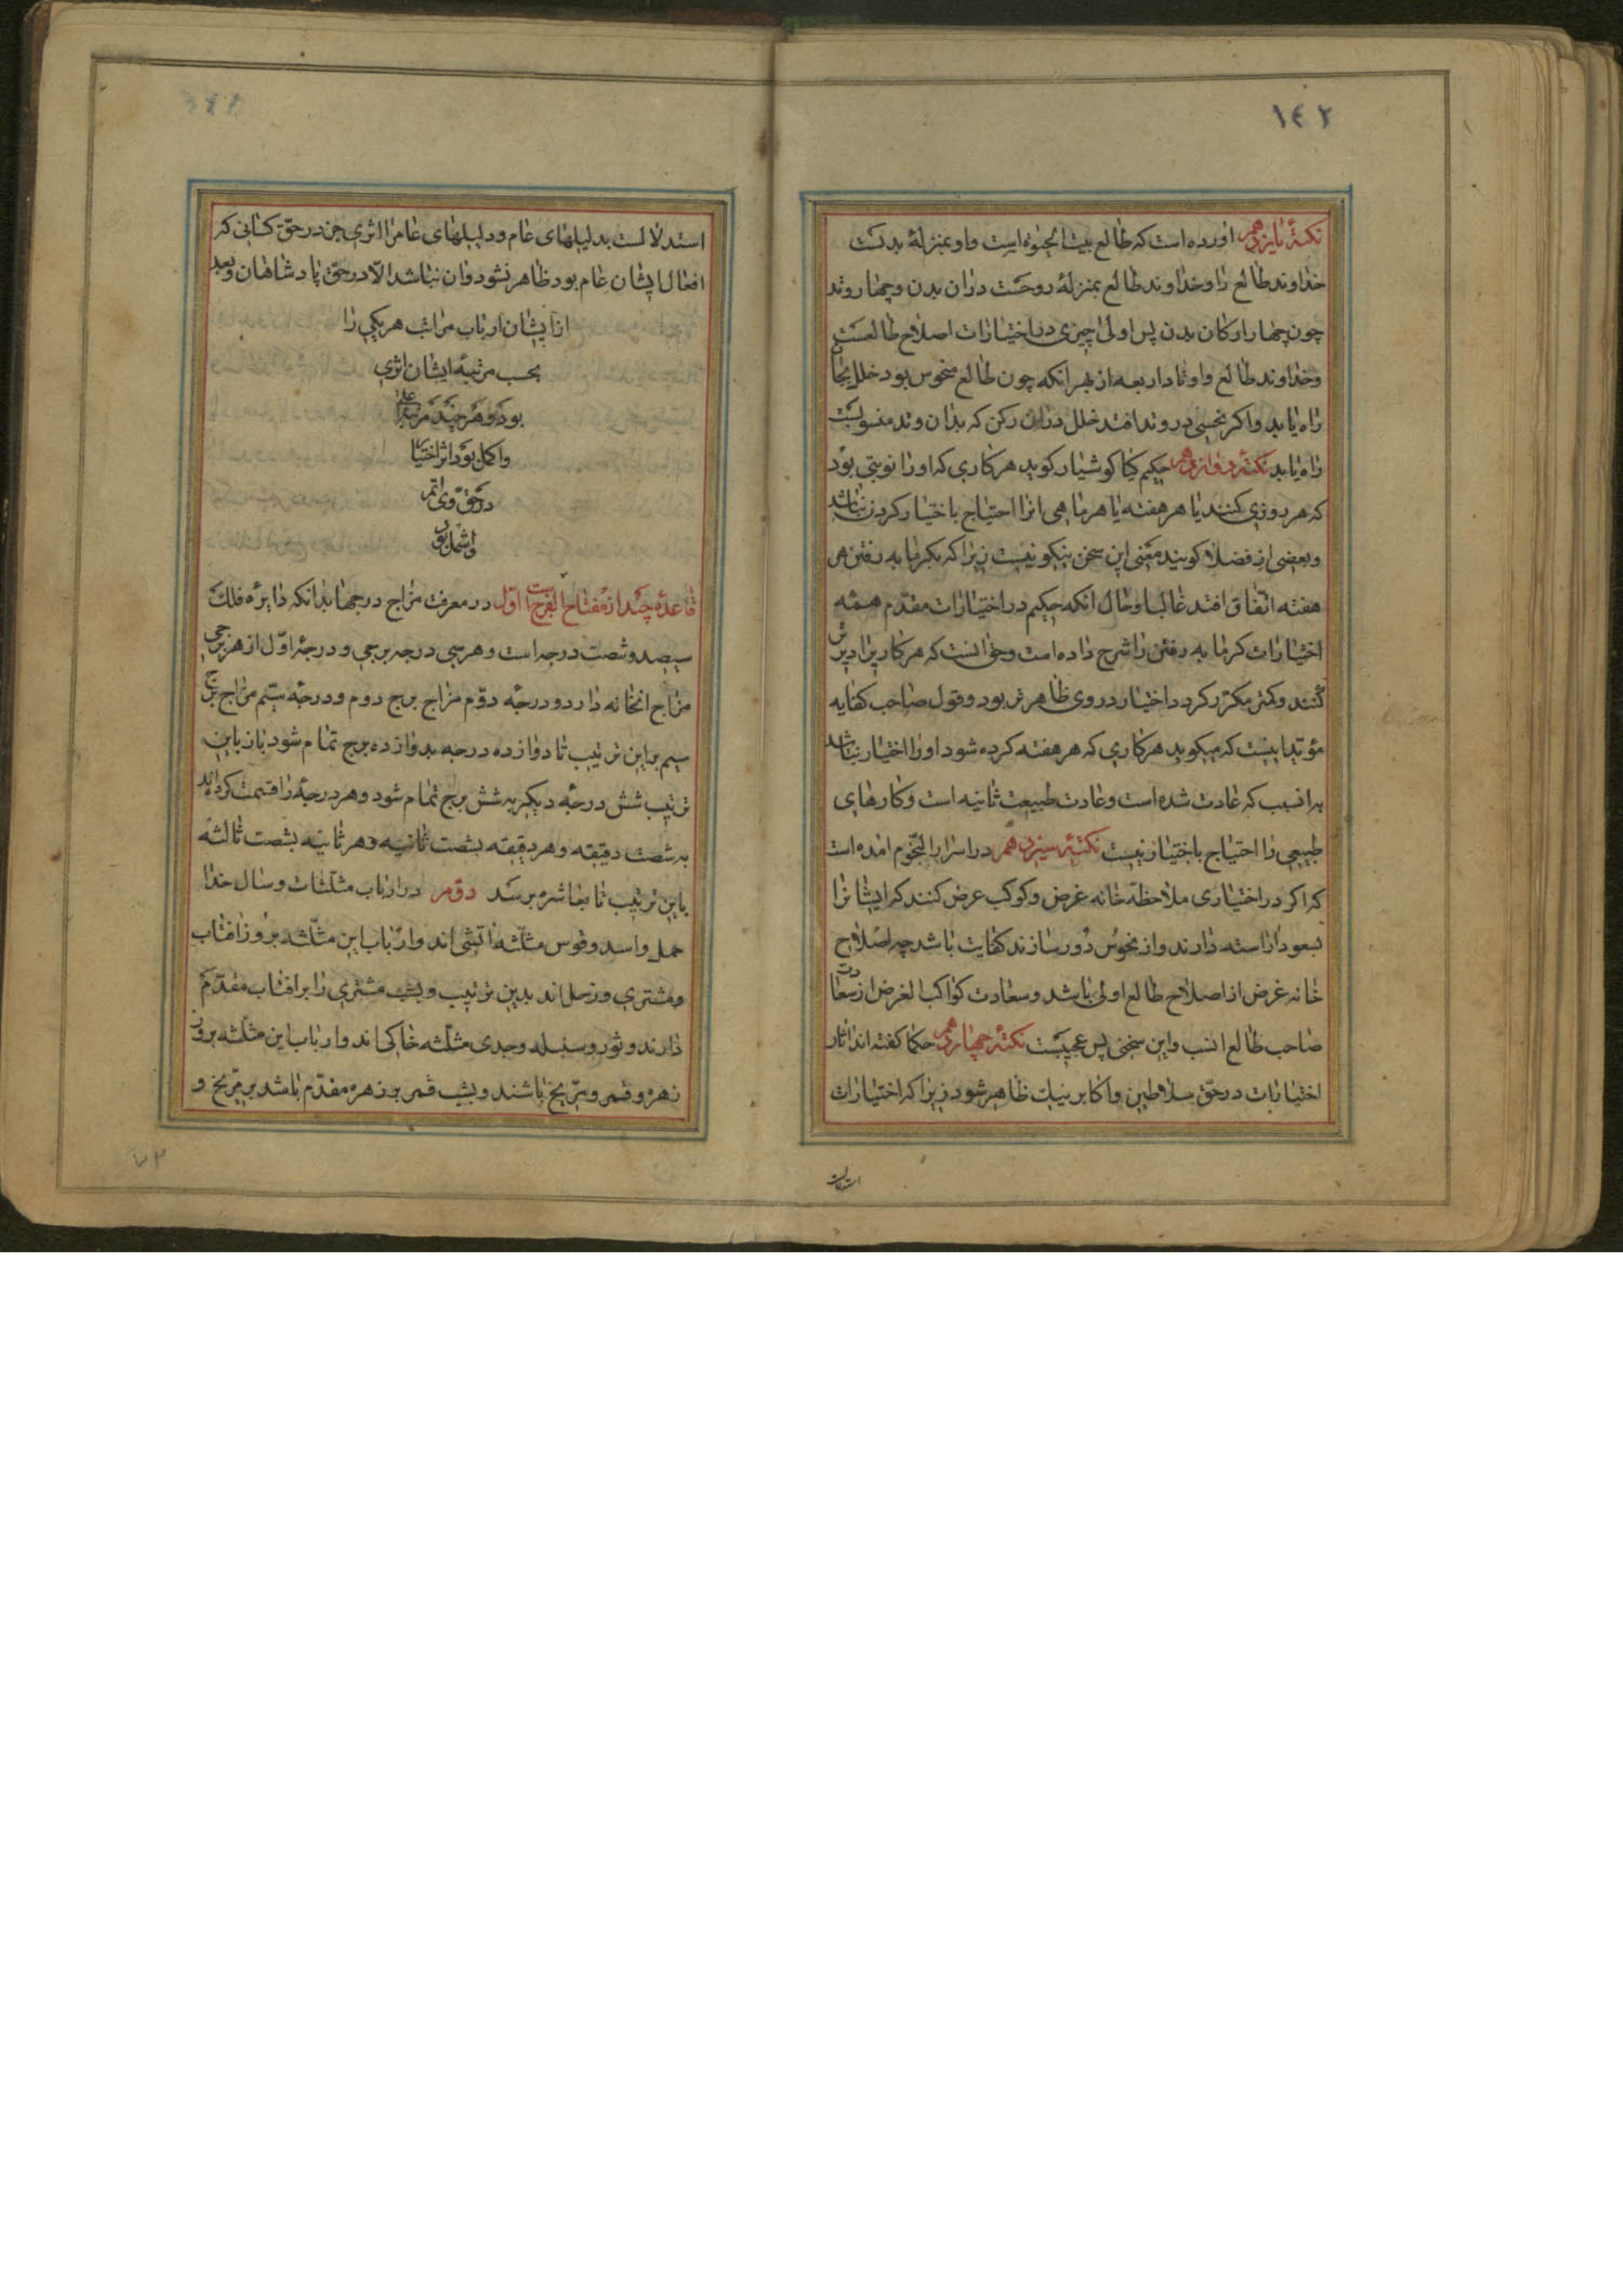 ١٤٢
نکتهٔ یازدهم اورده است که طالع بیت الحیوة است و او بمنزلهٔ بدنست
خداوند طالع را و خداوند طالع بمنزلهٔ روحست دران بدن و چهار وتد
چون چهار ارکان بدن پس اولی چیزی در اختیارات اصلاح طالعست
و خداوند طالع و اوتاد اربعه از بهر انکه چون طالع منحوس بود خلل بجا
راه یابد و اکر نحسی در وتد افتد خلل دران رکن که بدان وتد منسوبست
راه یابد نکتهٔ دوازدهم حکیم کیا کوشیار کوید هر کاری که او را نوبتی بود
که هر روزی کنند یا هر هفته یا هر ماهی انرا احتیاج باختیار کردن نباشد
و بعضی از فضلا کویند معنی این سخن نیکو نیست زیرا که بکرمابه رفتن هر
هفته اتفاق افتد غالبا و حال انکه حکیم در اختیارات مقدم همه
اختیارات کرمابه رفتن را شرح داده است و حق انست که هر کار را دیرتر
کنند و کمتر مکرر کردد اختیار در وی ظاهرتر بود و قول صاحب کفایه
مؤید اینست که میکوید هر کاری که هر هفته کرده شود او را اختیار نباشد
بدانسبب که عادت شده است و عادت طبیعت ثانیه است و کارهای
طبیعی را احتیاج باختیار نیست نکتهٔ سیزدهم در اسرار النجوم امده است
که اکر در اختیاری ملاحظهٔ خانه غرض و کوکب عرض کنند که ایشانرا
بسعود اراسته دارند و از نحوس دور سازند کفایت باشد چه اصلاح
خانه غرض از اصلاح طالع اولی باشد و سعادت کواکب الغرض از سعادت
صاحب طالع انسب و این سخنی بس عجیبست نکتهٔ چهاردهم حکما کفته اند اثار
اختیارات در حق سلاطین و اکابر نیک ظاهر شود زیرا که اختیارات
استدلالست
استدلالست بدلیلهای عام و دلیلهای عام را اثری جز در حق کسانی که
افعال ایشان عام بود ظاهر نشود وان نباشد الا در حق پادشاهان و بعد
از ایشان ارباب مراتب هر یکی را
بحسب مرتبهٔ ایشان اثری
بود و هر چند مرتبه اعلی
و اکمل بود اثر اختیار
در حق وی اتم
و اشمل بود
قاعدهٔ چند از مفتاح الفرج است اول در معرفت مزاج درجها بدانکه دایرهٔ فلک
سیصد و شصت درجه است و هر سی درجه برجی و درجهٔ اول از هر برجی
مزاج انخانه دارد و درجهٔ دوم مزاج برج دوم و درجهٔ سیم مزاج برج
سیم بر این ترتیب تا دوازده درجه بدوازده برج تمام شود باز باین
ترتیب شش درجهٔ دیکر به شش برج تمام شود و هر درجهٔ را قسمت کرده اند
به شصت دقیقه و هر دقیقه بشصت ثانیه و هر ثانیه بشصت ثالثه
باین ترتیب تا بعاشره برسد دوم در ارباب مثلثات و سال خدا
حمل و اسد و قوس مثلثه اتشی اند و ارباب این مثلثه بروز افتاب
و مشتری و زحل اند بدین ترتیب و بشب مشتری را بر افتاب مقدم
دارند و ثور و سنبله و جدی مثلثه خاکی اند و ارباب این مثلثه بروز
زهره و قمر و مریخ باشند و بشب قمر بر زهره مقدم باشد بر مریخ و
٧٢